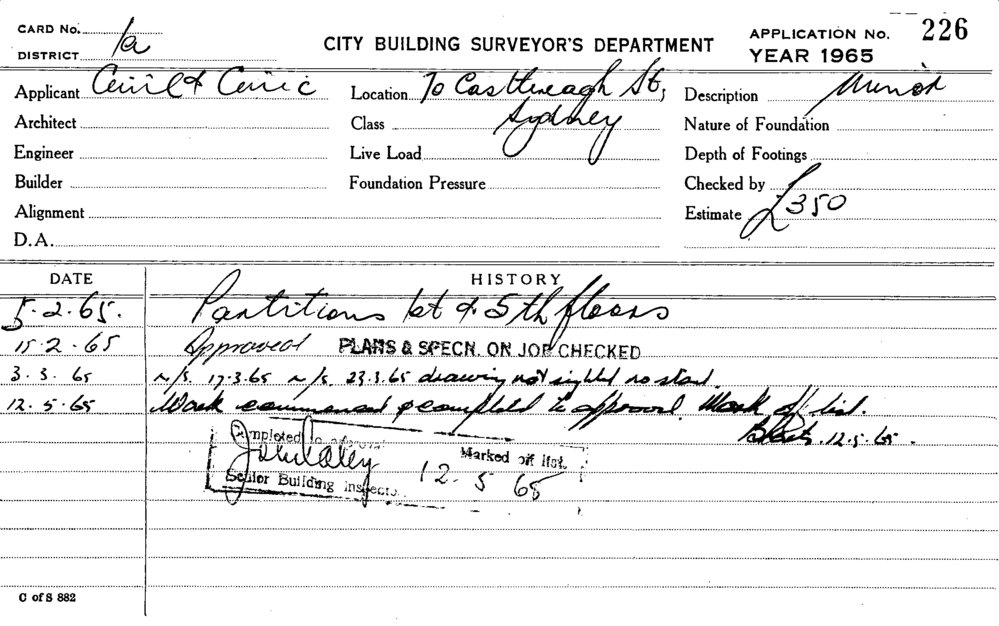 CARD No.
DISTRICT 1a
CITY BUILDING SURVEYOR'S DEPARTMENT
APPLICATION No. 226
YEAR 1965
Applicant Civil & Civic
Location 70 Castlereagh St, Sydney
Description Minor
Architect
Class
Nature of Foundation
Engineer
Live Load
Depth of Footings
Builder
Foundation Pressure
Checked by
Alignment
Estimate £350
D.A.
DATE HISTORY
5.2.65. Partitions 1st & 5th floors
15.2.65 Approved PLANS & SPECN. ON JOB CHECKED
3.3.65 n/s. 17.3.65 n/s. 23.3.65 drawing not sighted no start.
12.5.65 Work commenced & completed to approval. Mark off list.
12.5.65.
Completed to approval
Marked off list.
Senior Building Inspector
12.5.65
C of S 882